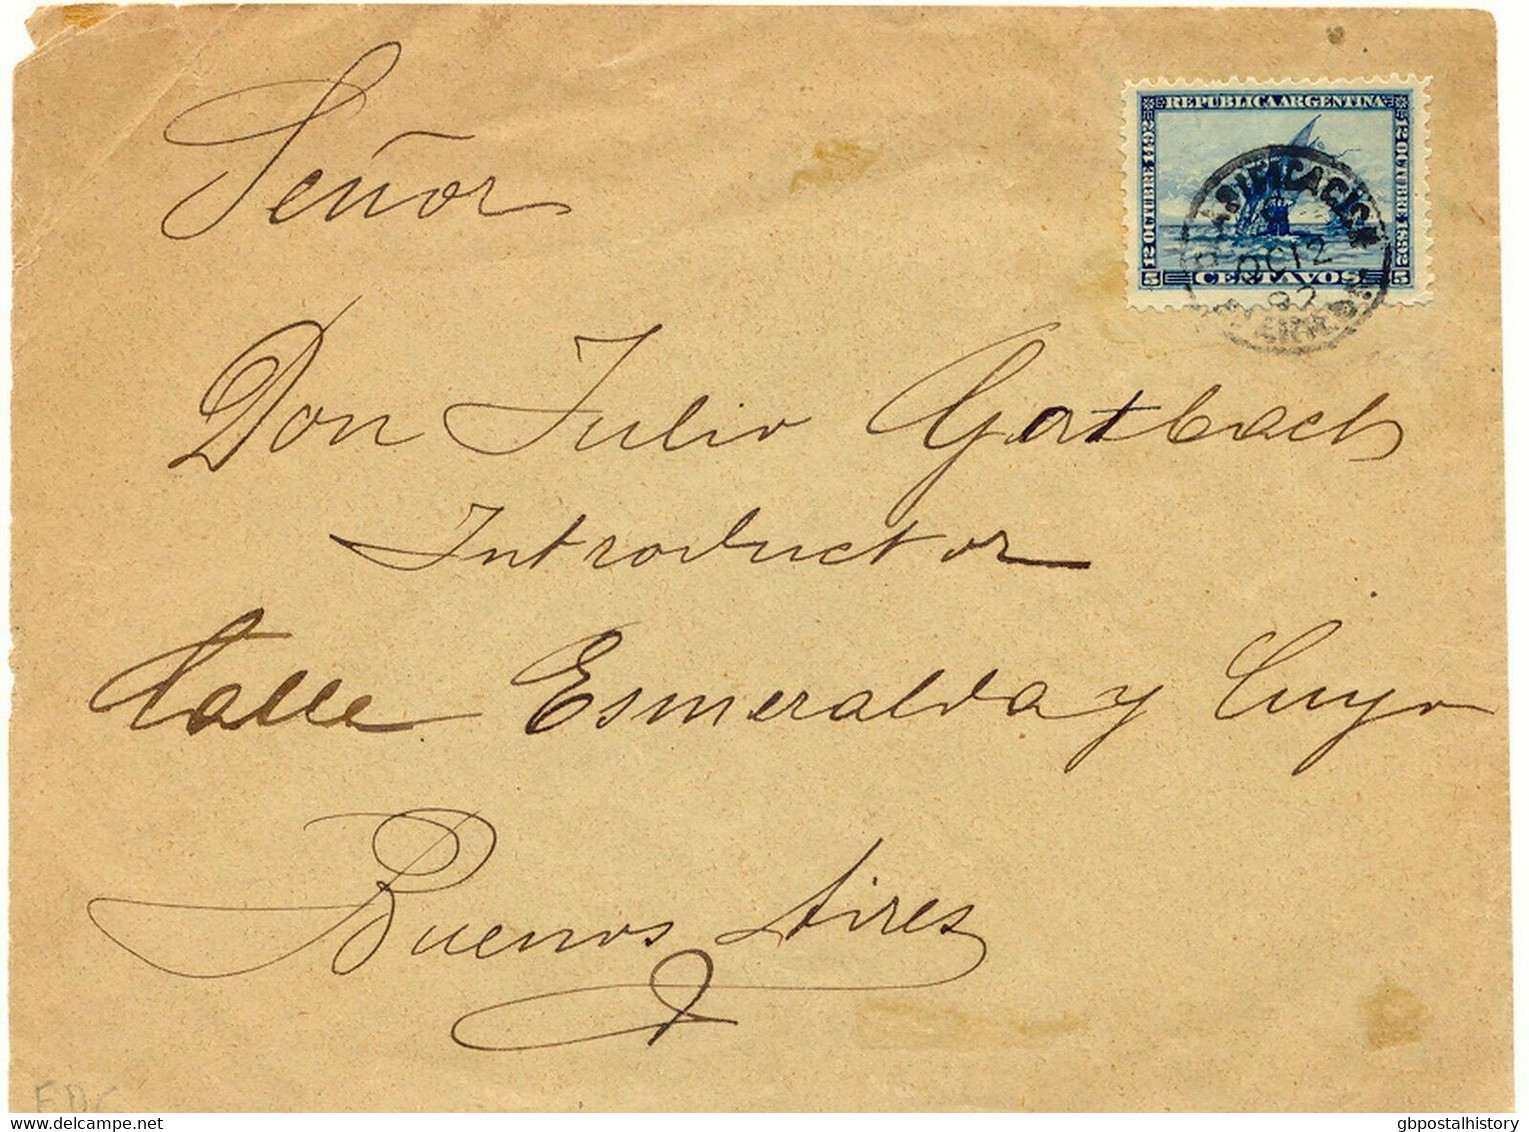 Señor
REPUBLICA ARGENTINA
12 OCTUBRE 1492
12 OCTUBRE 1892
5 CENTAVOS 5
OC 12
92
Don Julio Gottbach
Introductor
Calle Esmeralda y Cuyo
Buenos Aires
FDC
delcampe.net
gbpostalhistory